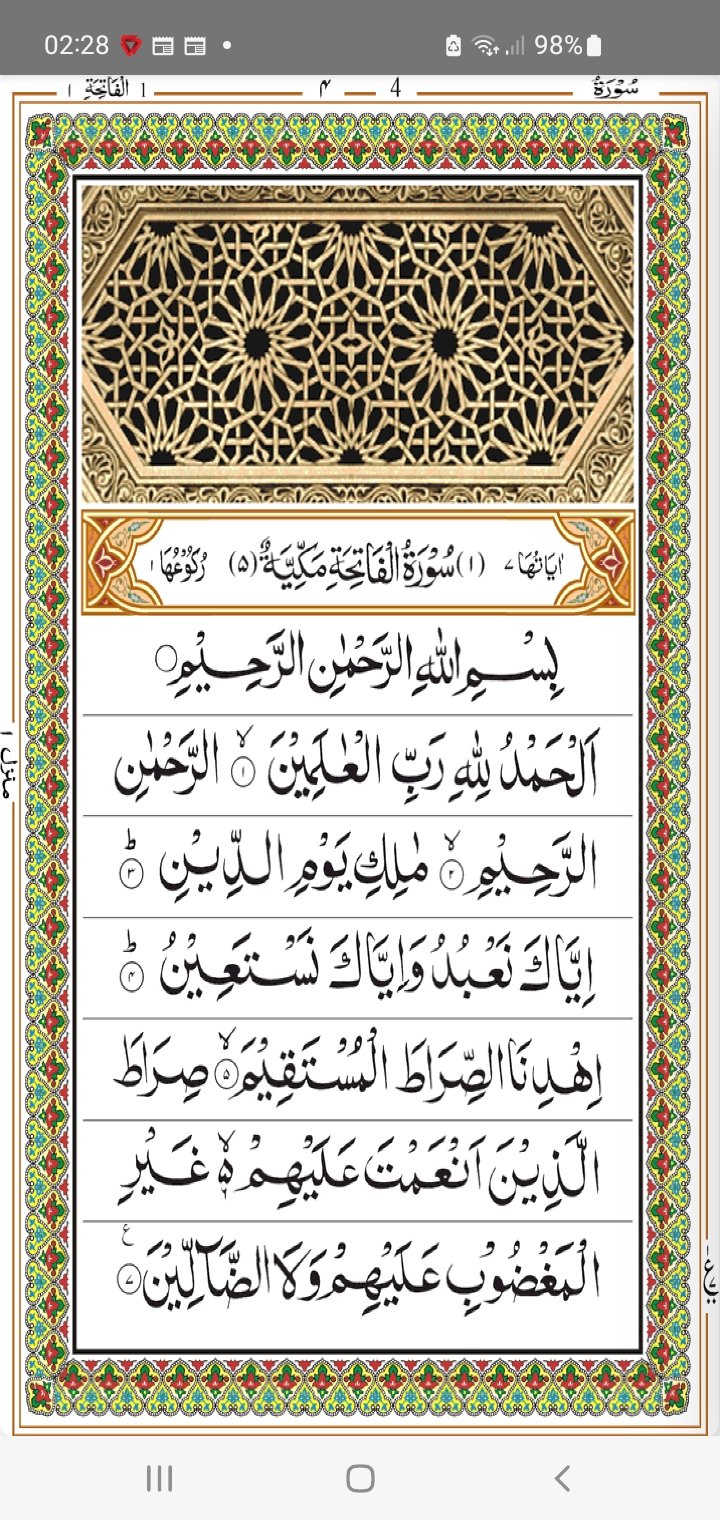 02:28 98%
سُوْرَةُ 4 ۴ ١ اَلْفَاتِحَةِ ١
اٰيَاتُهَا ٧ (١) سُوْرَةُ الْفَاتِحَةِ مَكِّيَّةٌ (۵) رُكُوْعُهَا ١
بِسْمِ اللّٰهِ الرَّحْمٰنِ الرَّحِيْمِ ○
اَلْحَمْدُ لِلّٰهِ رَبِّ الْعٰلَمِيْنَ ۙ ١ الرَّحْمٰنِ
الرَّحِيْمِ ۙ ٢ مٰلِكِ يَوْمِ الدِّيْنِ ؕ ٣
اِيَّاكَ نَعْبُدُ وَاِيَّاكَ نَسْتَعِيْنُ ؕ ۴
اِهْدِنَا الصِّرَاطَ الْمُسْتَقِيْمَ ۙ ۵ صِرَاطَ
الَّذِيْنَ اَنْعَمْتَ عَلَيْهِمْ ۙ ۵ غَيْرِ
الْمَغْضُوْبِ عَلَيْهِمْ وَلَا الضَّآلِّيْنَ ٧ ع
منزل ١